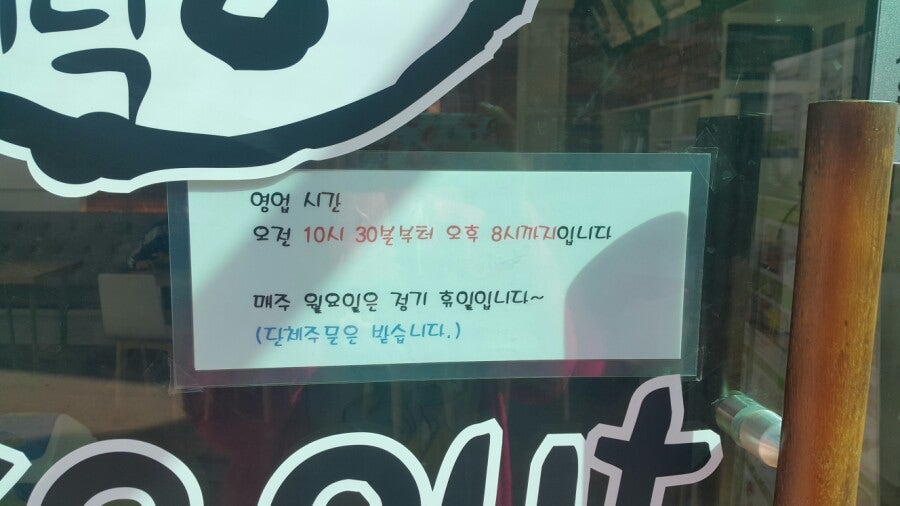 영업 시간
오전 10시 30분부터 오후 8시까지입니다
매주 월요일은 정기 휴일입니다~
(단체주문은 받습니다.)
out